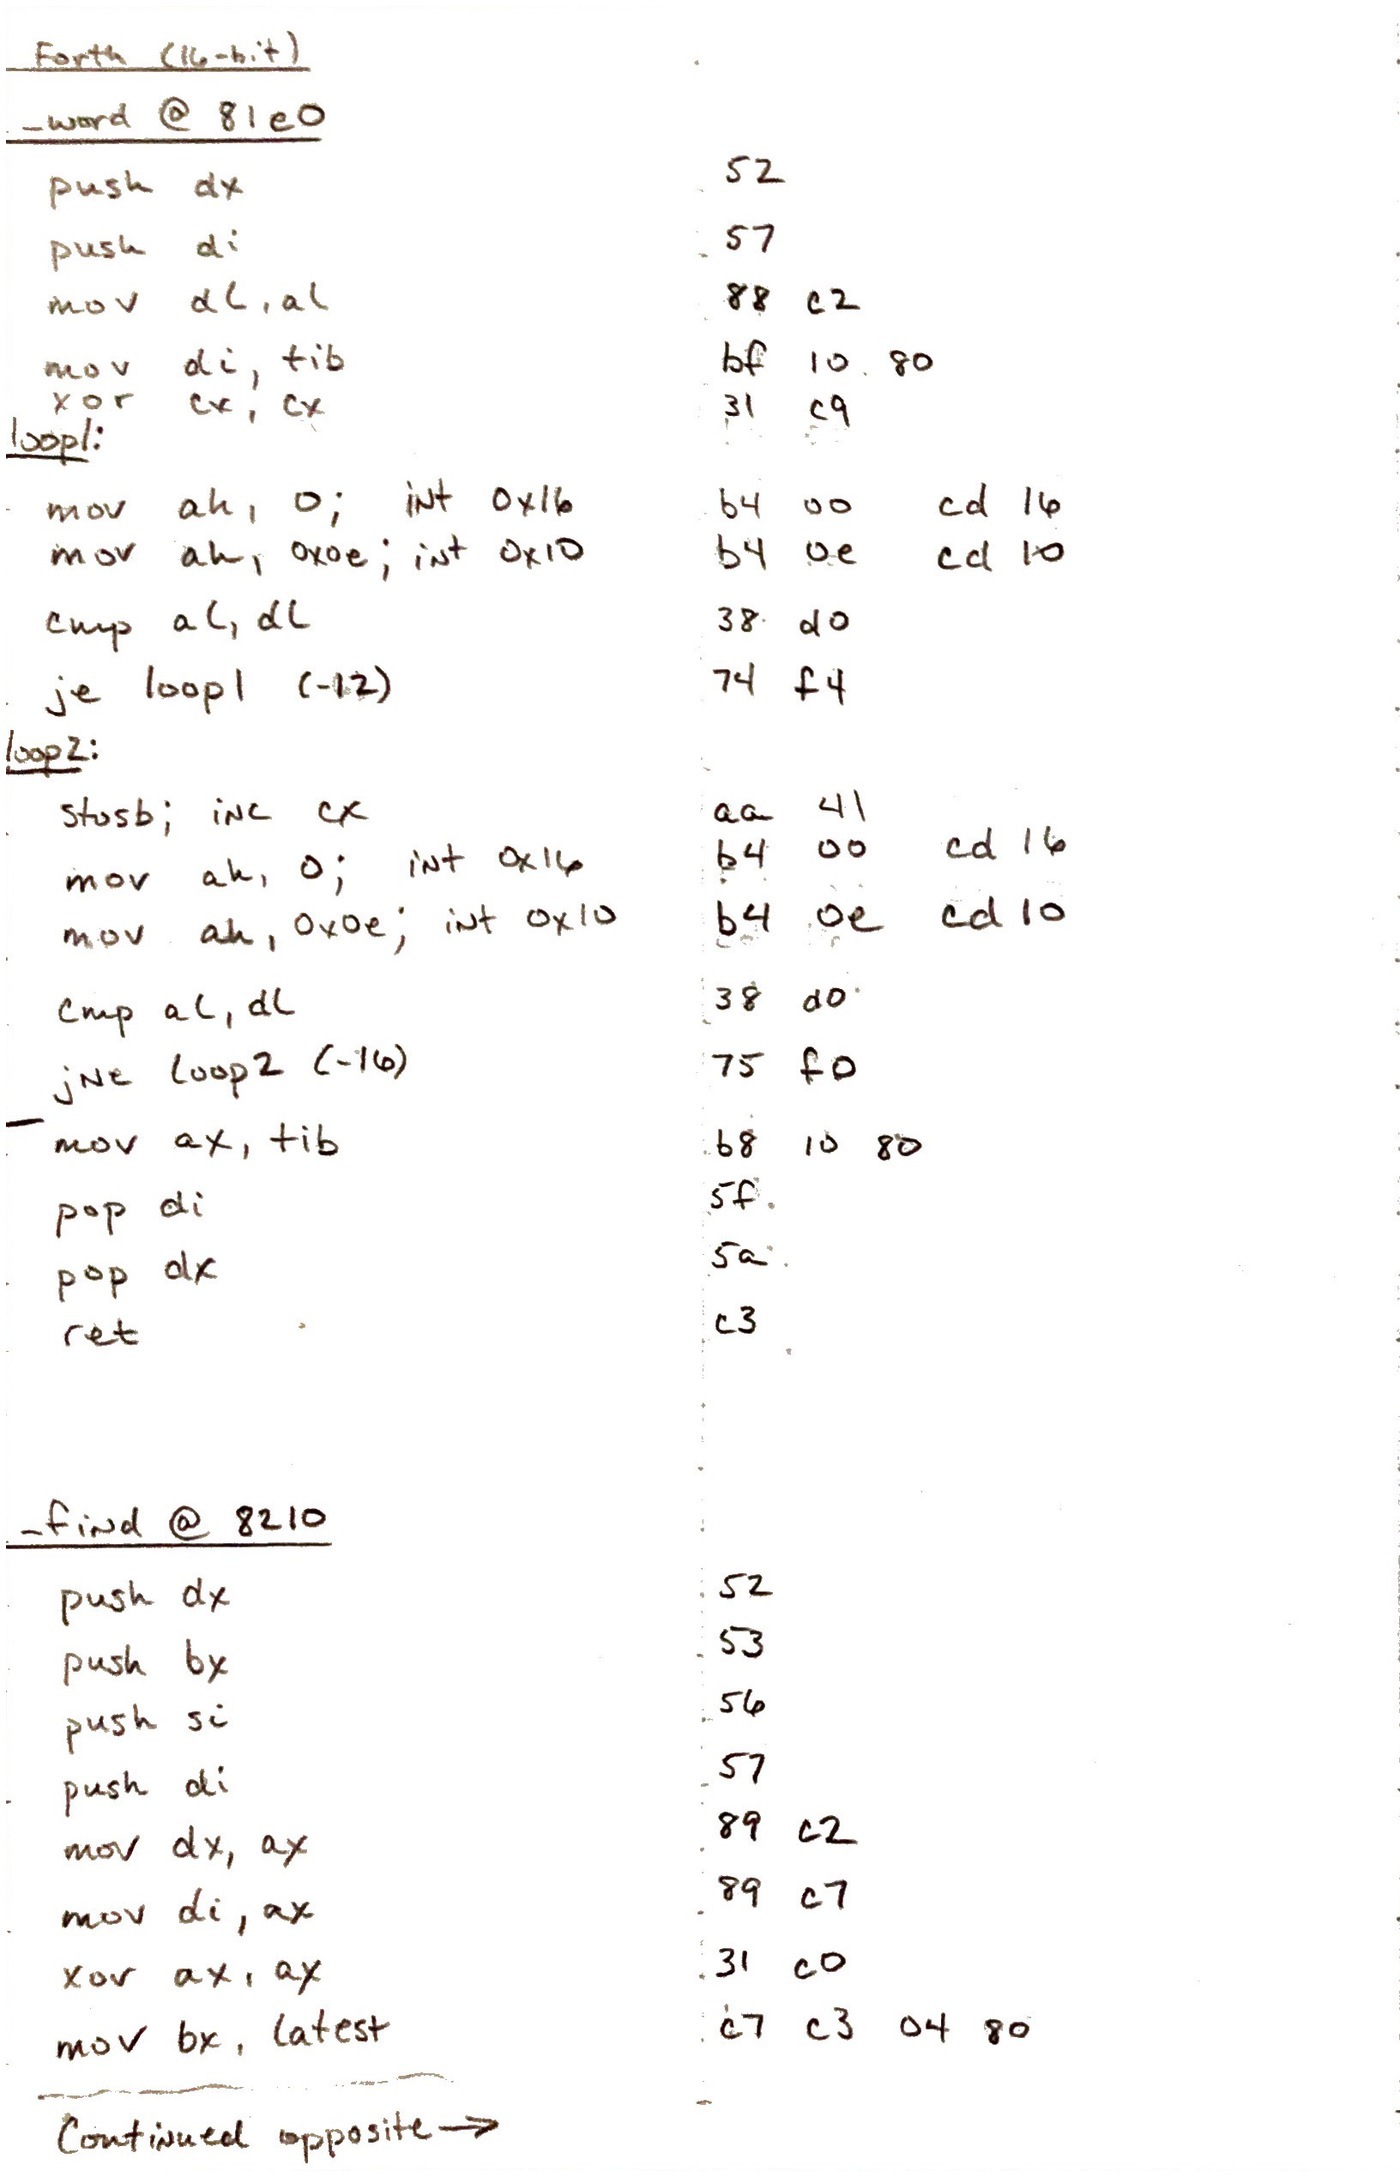 Forth (16-bit)
_word @ 81e0
push dx 52
push di 57
mov dl, al 88 c2
mov di, tib bf 10 80
xor cx, cx 31 c9
loop1:
mov ah, 0; int 0x16 b4 00 cd 16
mov ah, 0x0e; int 0x10 b4 0e cd 10
cmp al, dl 38 d0
je loop1 (-12) 74 f4
loop2:
stosb; inc cx aa 41
mov ah, 0; int 0x16 b4 00 cd 16
mov ah, 0x0e; int 0x10 b4 0e cd 10
cmp al, dl 38 d0
jne loop2 (-16) 75 f0
mov ax, tib b8 10 80
pop di 5f
pop dx 5a
ret c3
_find @ 8210
push dx 52
push bx 53
push si 56
push di 57
mov dx, ax 89 c2
mov di, ax 89 c7
xor ax, ax 31 c0
mov bx, latest c7 c3 04 80
Continued opposite →